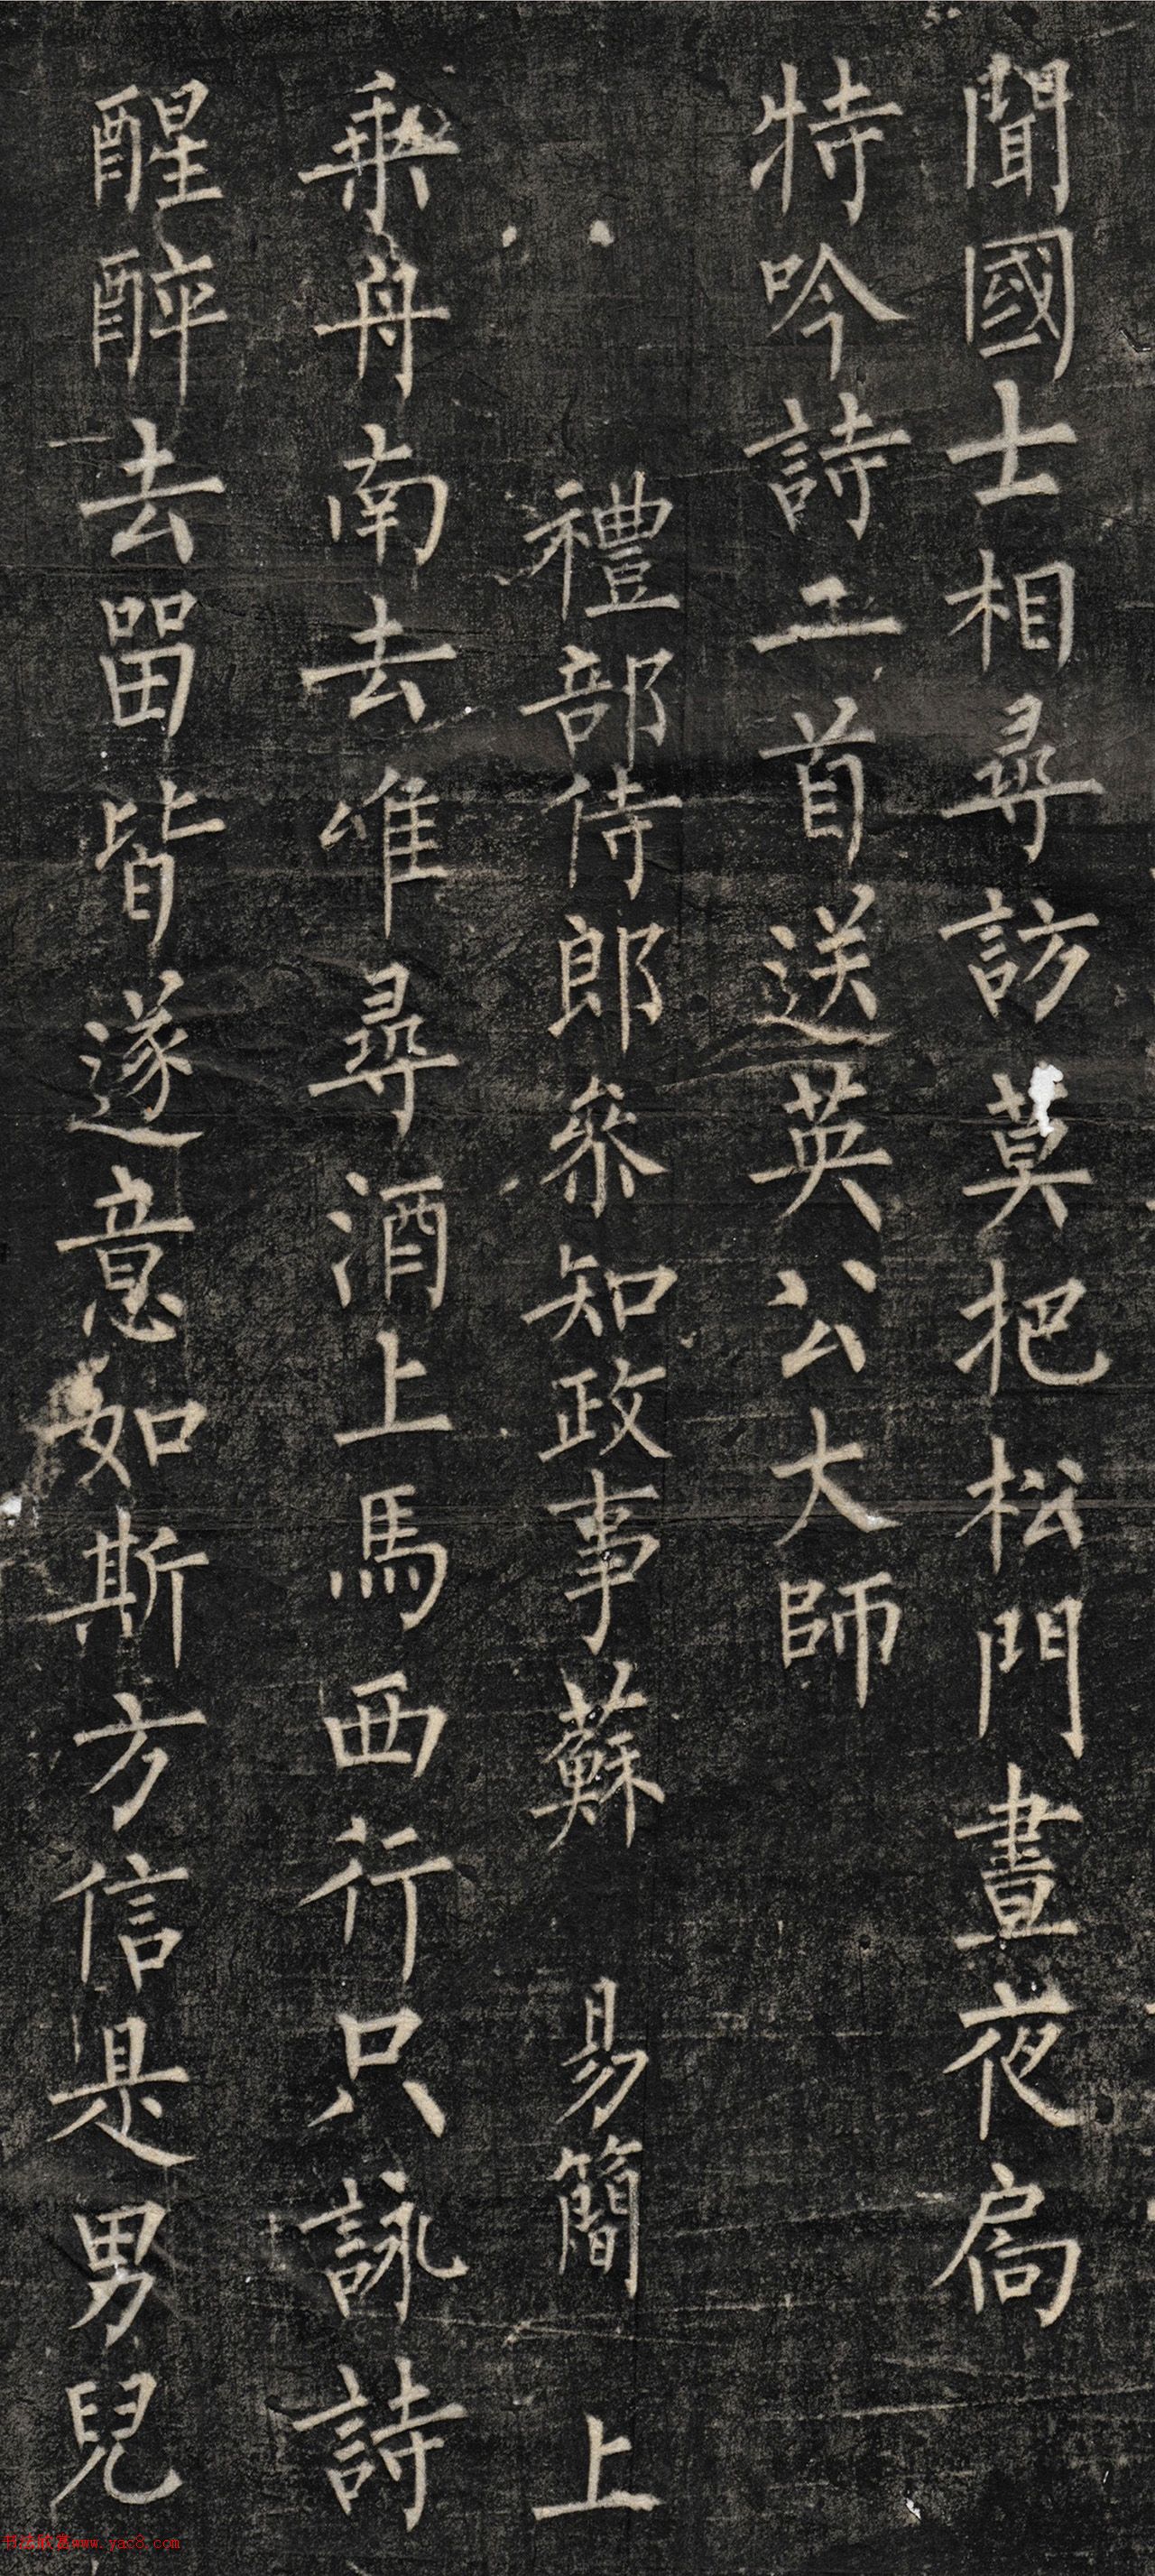 聞國士相尋訪莫把松門晝夜扃
特吟詩二首送英公大師
禮部侍郎叅知政事蘇 易簡 上
乘舟南去唯尋酒上馬西行只詠詩
醒醉去留皆遂意如斯方信是男兒
www.yac8.com